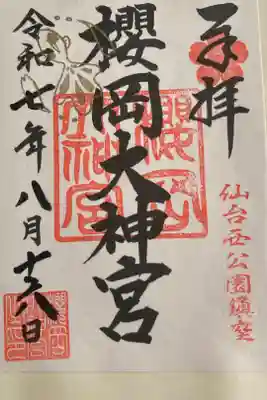 奉拝
仙台西公園鎮座
櫻岡大神宮
櫻岡大神宮
令和七年八月十八日